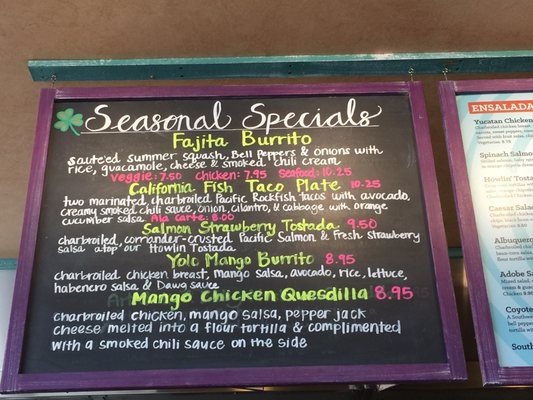 Seasonal Specials
Fajita Burrito
Sauteéd summer squash, Bell Peppers & onions with
rice, guacamole, cheese & smoked chili cream
Veggie: 7.50 Chicken: 7.95 Seafood: 10.25
California Fish Taco Plate 10.25
two marinated charbroiled Pacific Rockfish tacos with avocado,
creamy smoked chili sauce, onion, cilantro, & cabbage with orange
cucumber salsa Ala Carte: 8.00
Salmon Strawberry Tostada 9.50
charbroiled, corriander-crusted Pacific Salmon & Fresh strawberry
salsa atop our Howlin Tostada
Yolo Mango Burrito 8.95
charbroiled chicken breast, mango salsa, avocado, rice, lettuce,
habenero salsa & Dawg sauce
Mango Chicken Quesdilla 8.95
charbroiled chicken, mango salsa, pepper jack
cheese melted into a flour tortilla & complimented
with a smoked chili sauce on the side
ENSALADA
Yucatan Chicken
Spinach Salmo
Howlin' Tosta
Caesar Sala
Albuquerq
Adobe Sa
Coyote
Sout